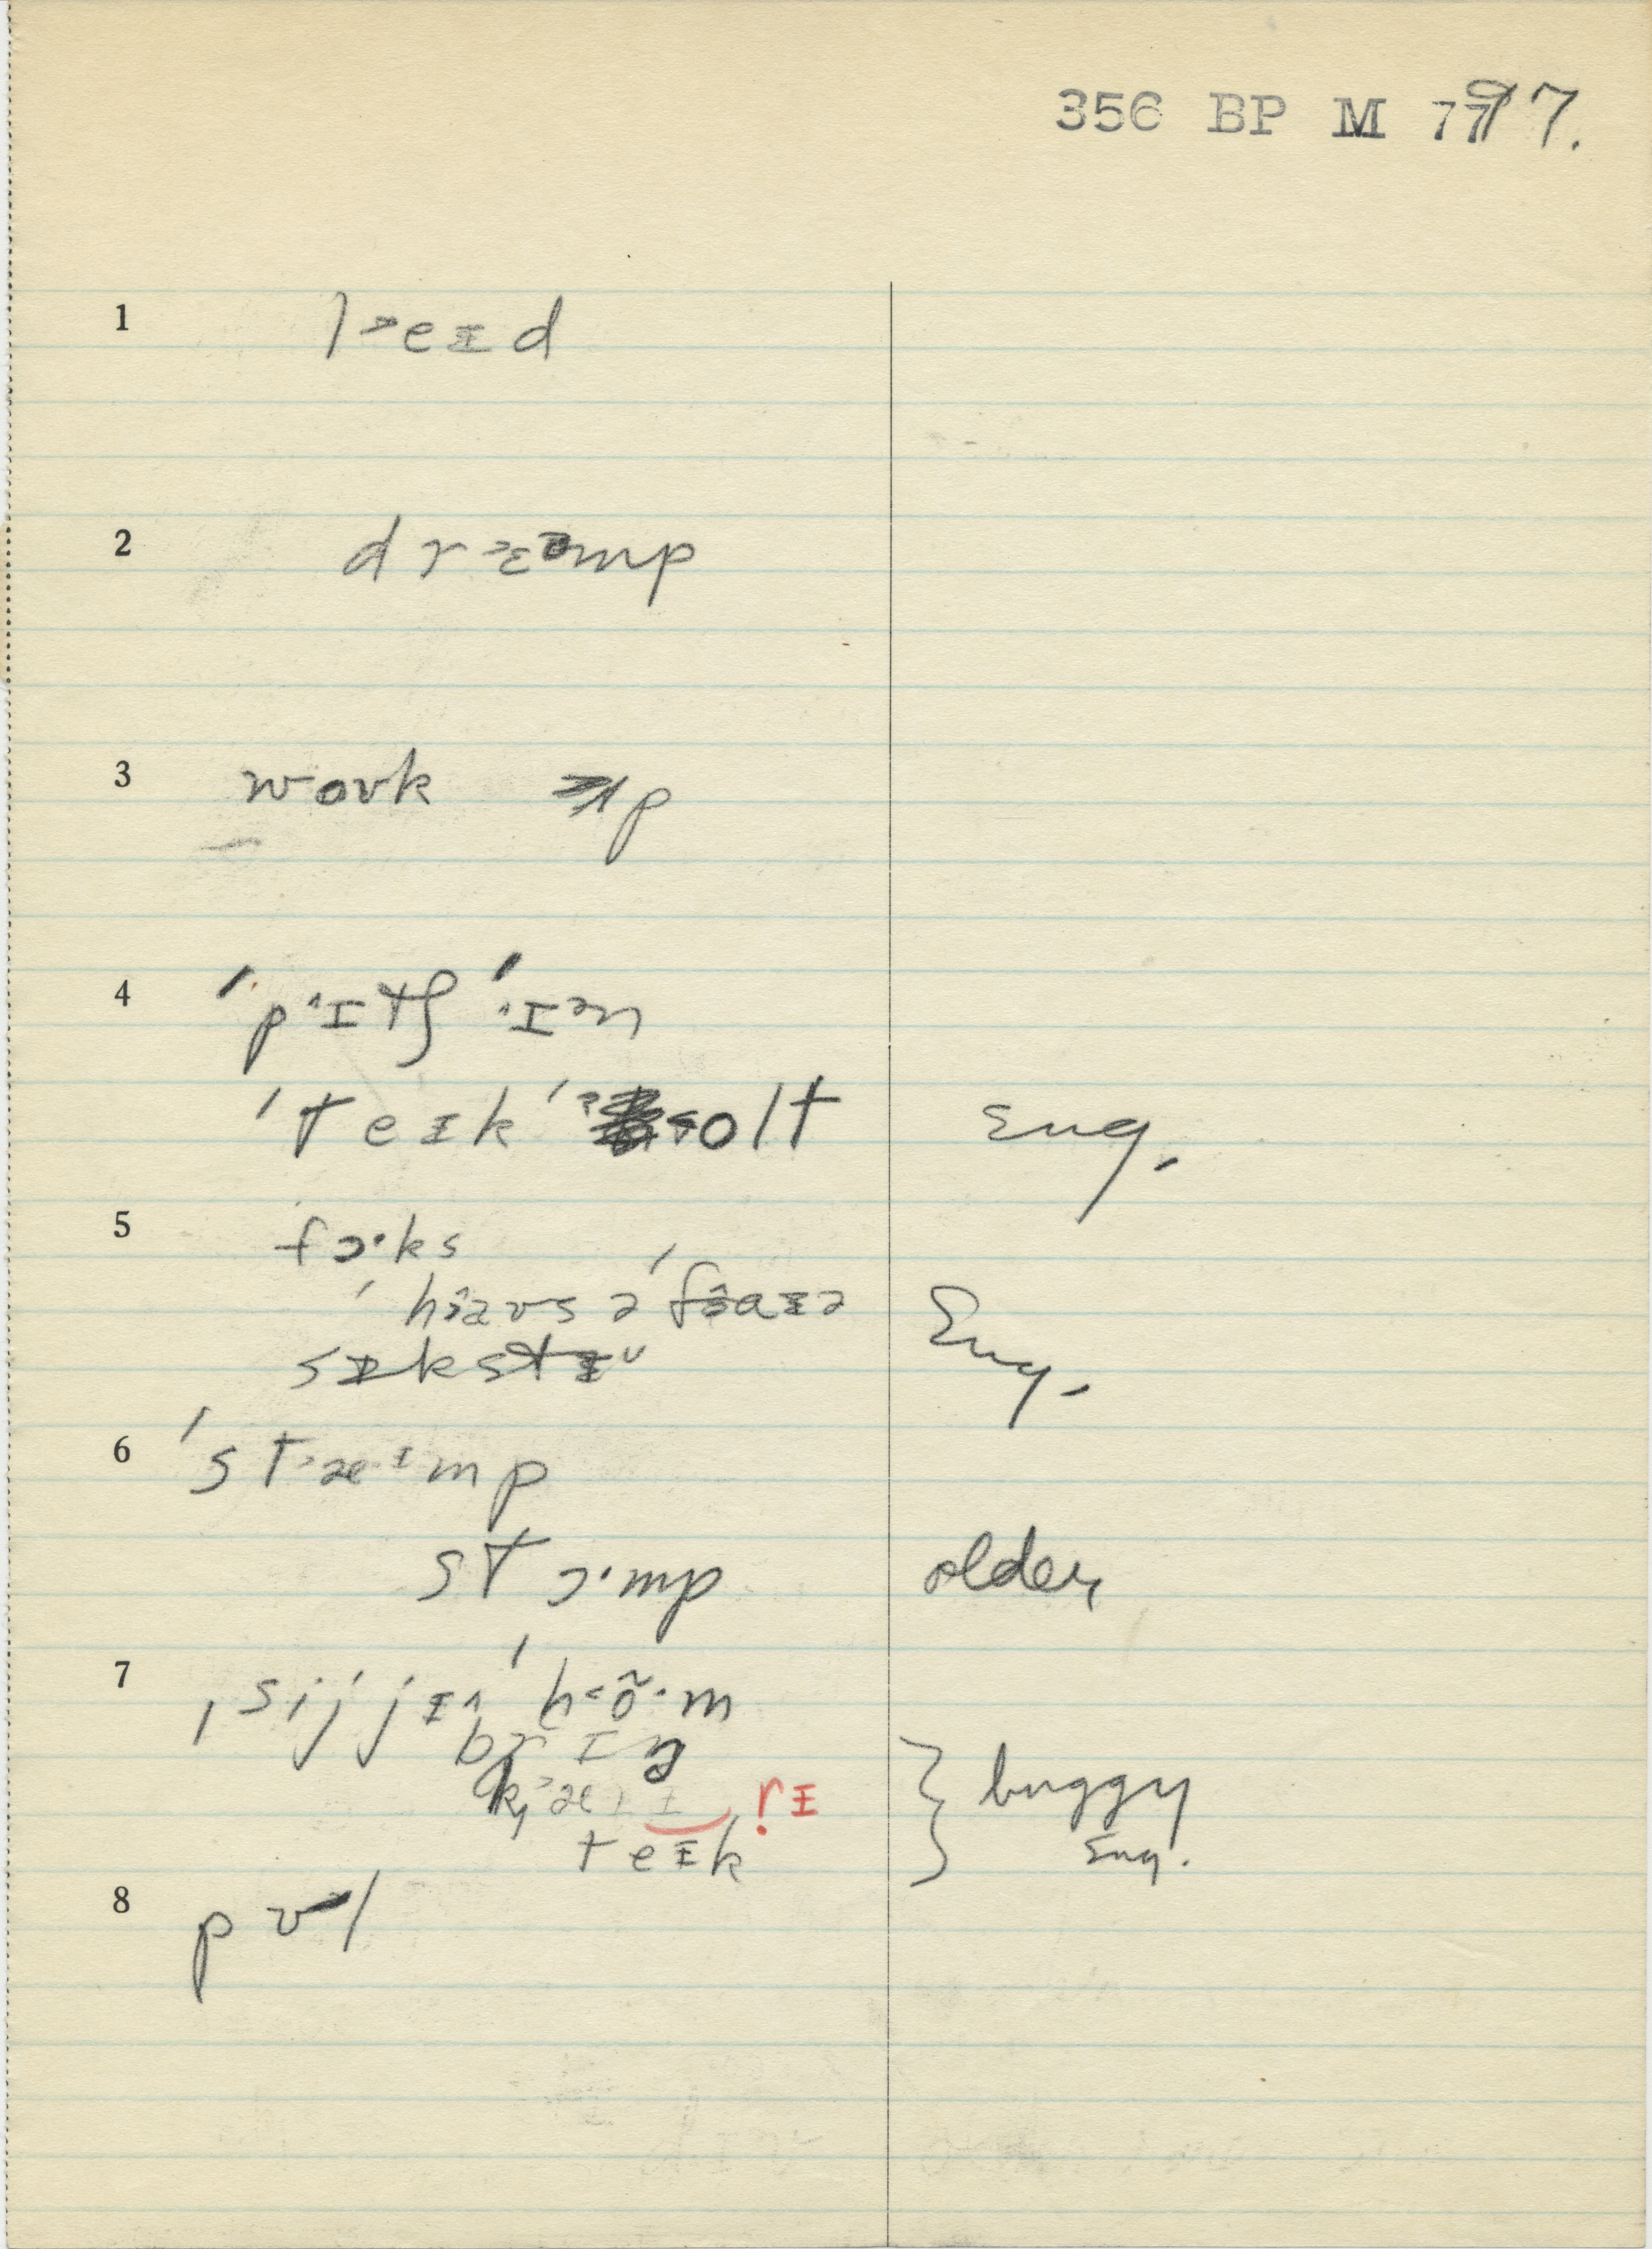 356 BP M 77 97.
1 l˃eɪd
2 dr˃ɛəmp
3 wovk ʌp
4 ˈp˄ɪtʃ ˈ˄ɪən
ˈteɪk ˈ˂olt Eng.
5 fɔ·ks
ˈhɜavs ə ˈfɜaɪə Eng.
sɪkstɪ˅
6 ˈst˃æ·ɪmp
stɔ·mp older
7 ˌsijjɪ˄ ˈh˂õ·m
brɪŋ
k˃æɪɪ rɪ } buggy
teɪk Eng.
8 pʊl